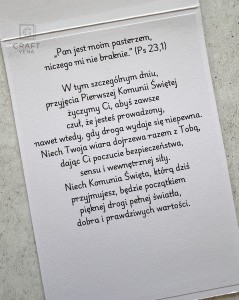 CRAFT
VENA
„Pan jest moim pasterzem,
niczego mi nie braknie." (Ps 23,1)
W tym szczególnym dniu,
przyjęcia Pierwszej Komunii Świętej
życzymy Ci, abyś zawsze
czuł, że jesteś prowadzony,
nawet wtedy, gdy droga wydaje się niepewna.
Niech Twoja wiara dojrzewa razem z Tobą,
dając Ci poczucie bezpieczeństwa,
sensu i wewnętrznej siły.
Niech Komunia Święta, którą dziś
przyjmujesz, będzie początkiem
pięknej drogi pełnej światła,
dobra i prawdziwych wartości.